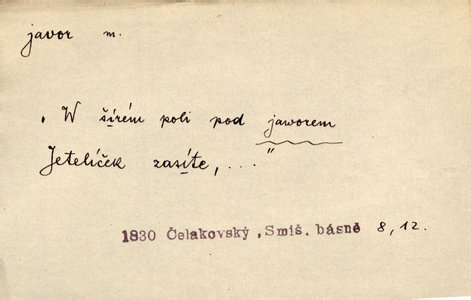 javor m.
„W šírém poli pod jaworem
Jetelíček zasíte,..."
1830 Čelakovský, Smíš. básně 8,12.